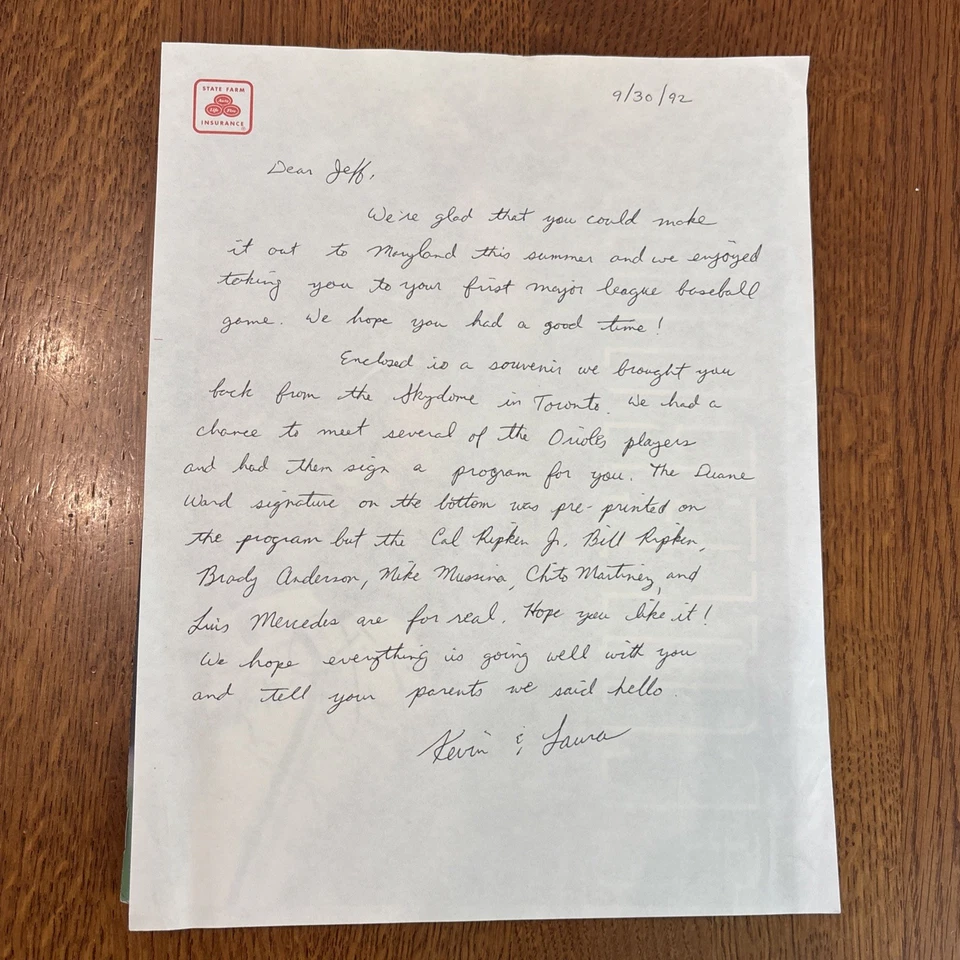 STATE FARM
Auto
Life Fire
INSURANCE
®
9/30/92
Dear Jeff,
We're glad that you could make
it out to Maryland this summer and we enjoyed
taking you to your first major league baseball
game. We hope you had a good time!
Enclosed is a souvenir we brought you
back from the Skydome in Toronto. We had a
chance to meet several of the Orioles players
and had them sign a program for you. The Duane
Ward signature on the bottom was pre-printed on
the program but the Cal Ripken Jr. Bill Ripken,
Brady Anderson, Mike Mussina, Chito Martinez, and
Luis Mercedes are for real. Hope you like it!
We hope everything is going well with you
and tell your parents we said hello.
Kevin & Laura